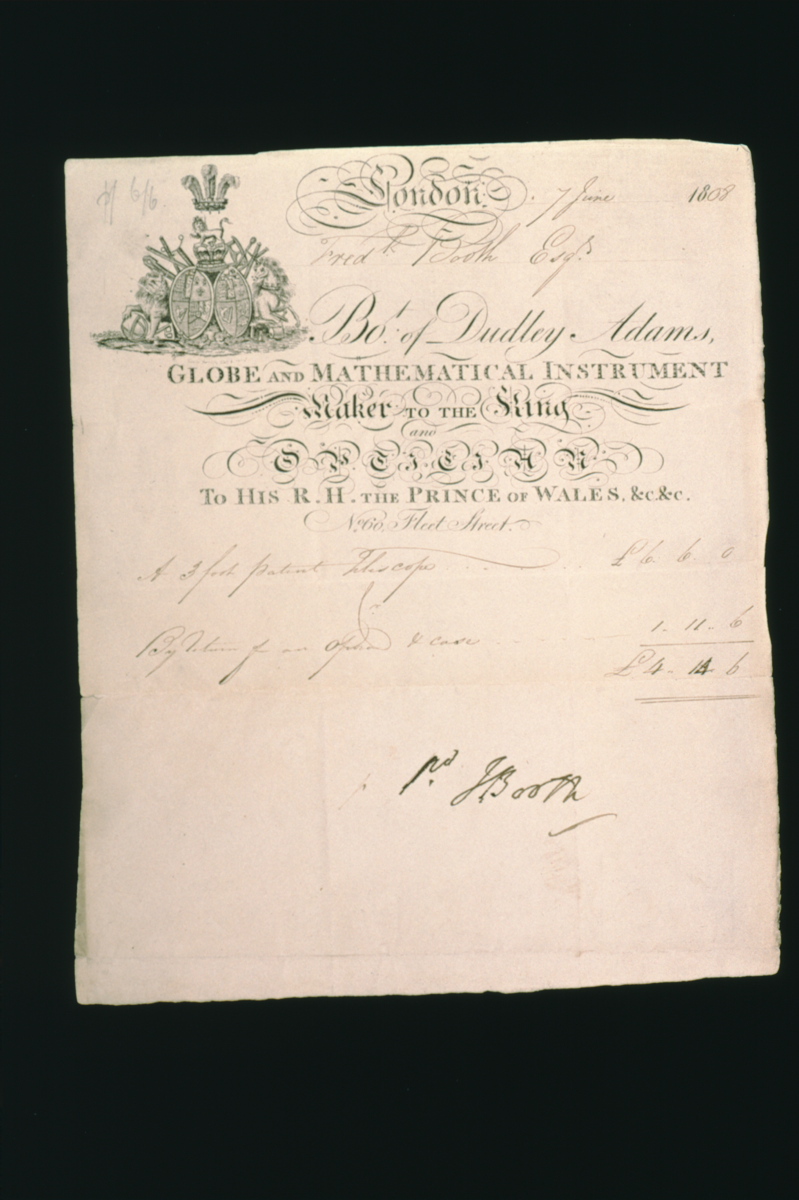 London. 7 June 1808
Fredk. Booth Esqr.
Bot. of Dudley Adams,
GLOBE AND MATHEMATICAL INSTRUMENT
Maker TO THE King
and
OPTICIAN
TO HIS R.H. THE PRINCE OF WALES, &c.&c.
No. 60, Fleet Street.
A 3 foot patent Telescope £6. 6. 0
By return for an & case 1. 11. 6
£4. 14. 6
Pd. JBooth